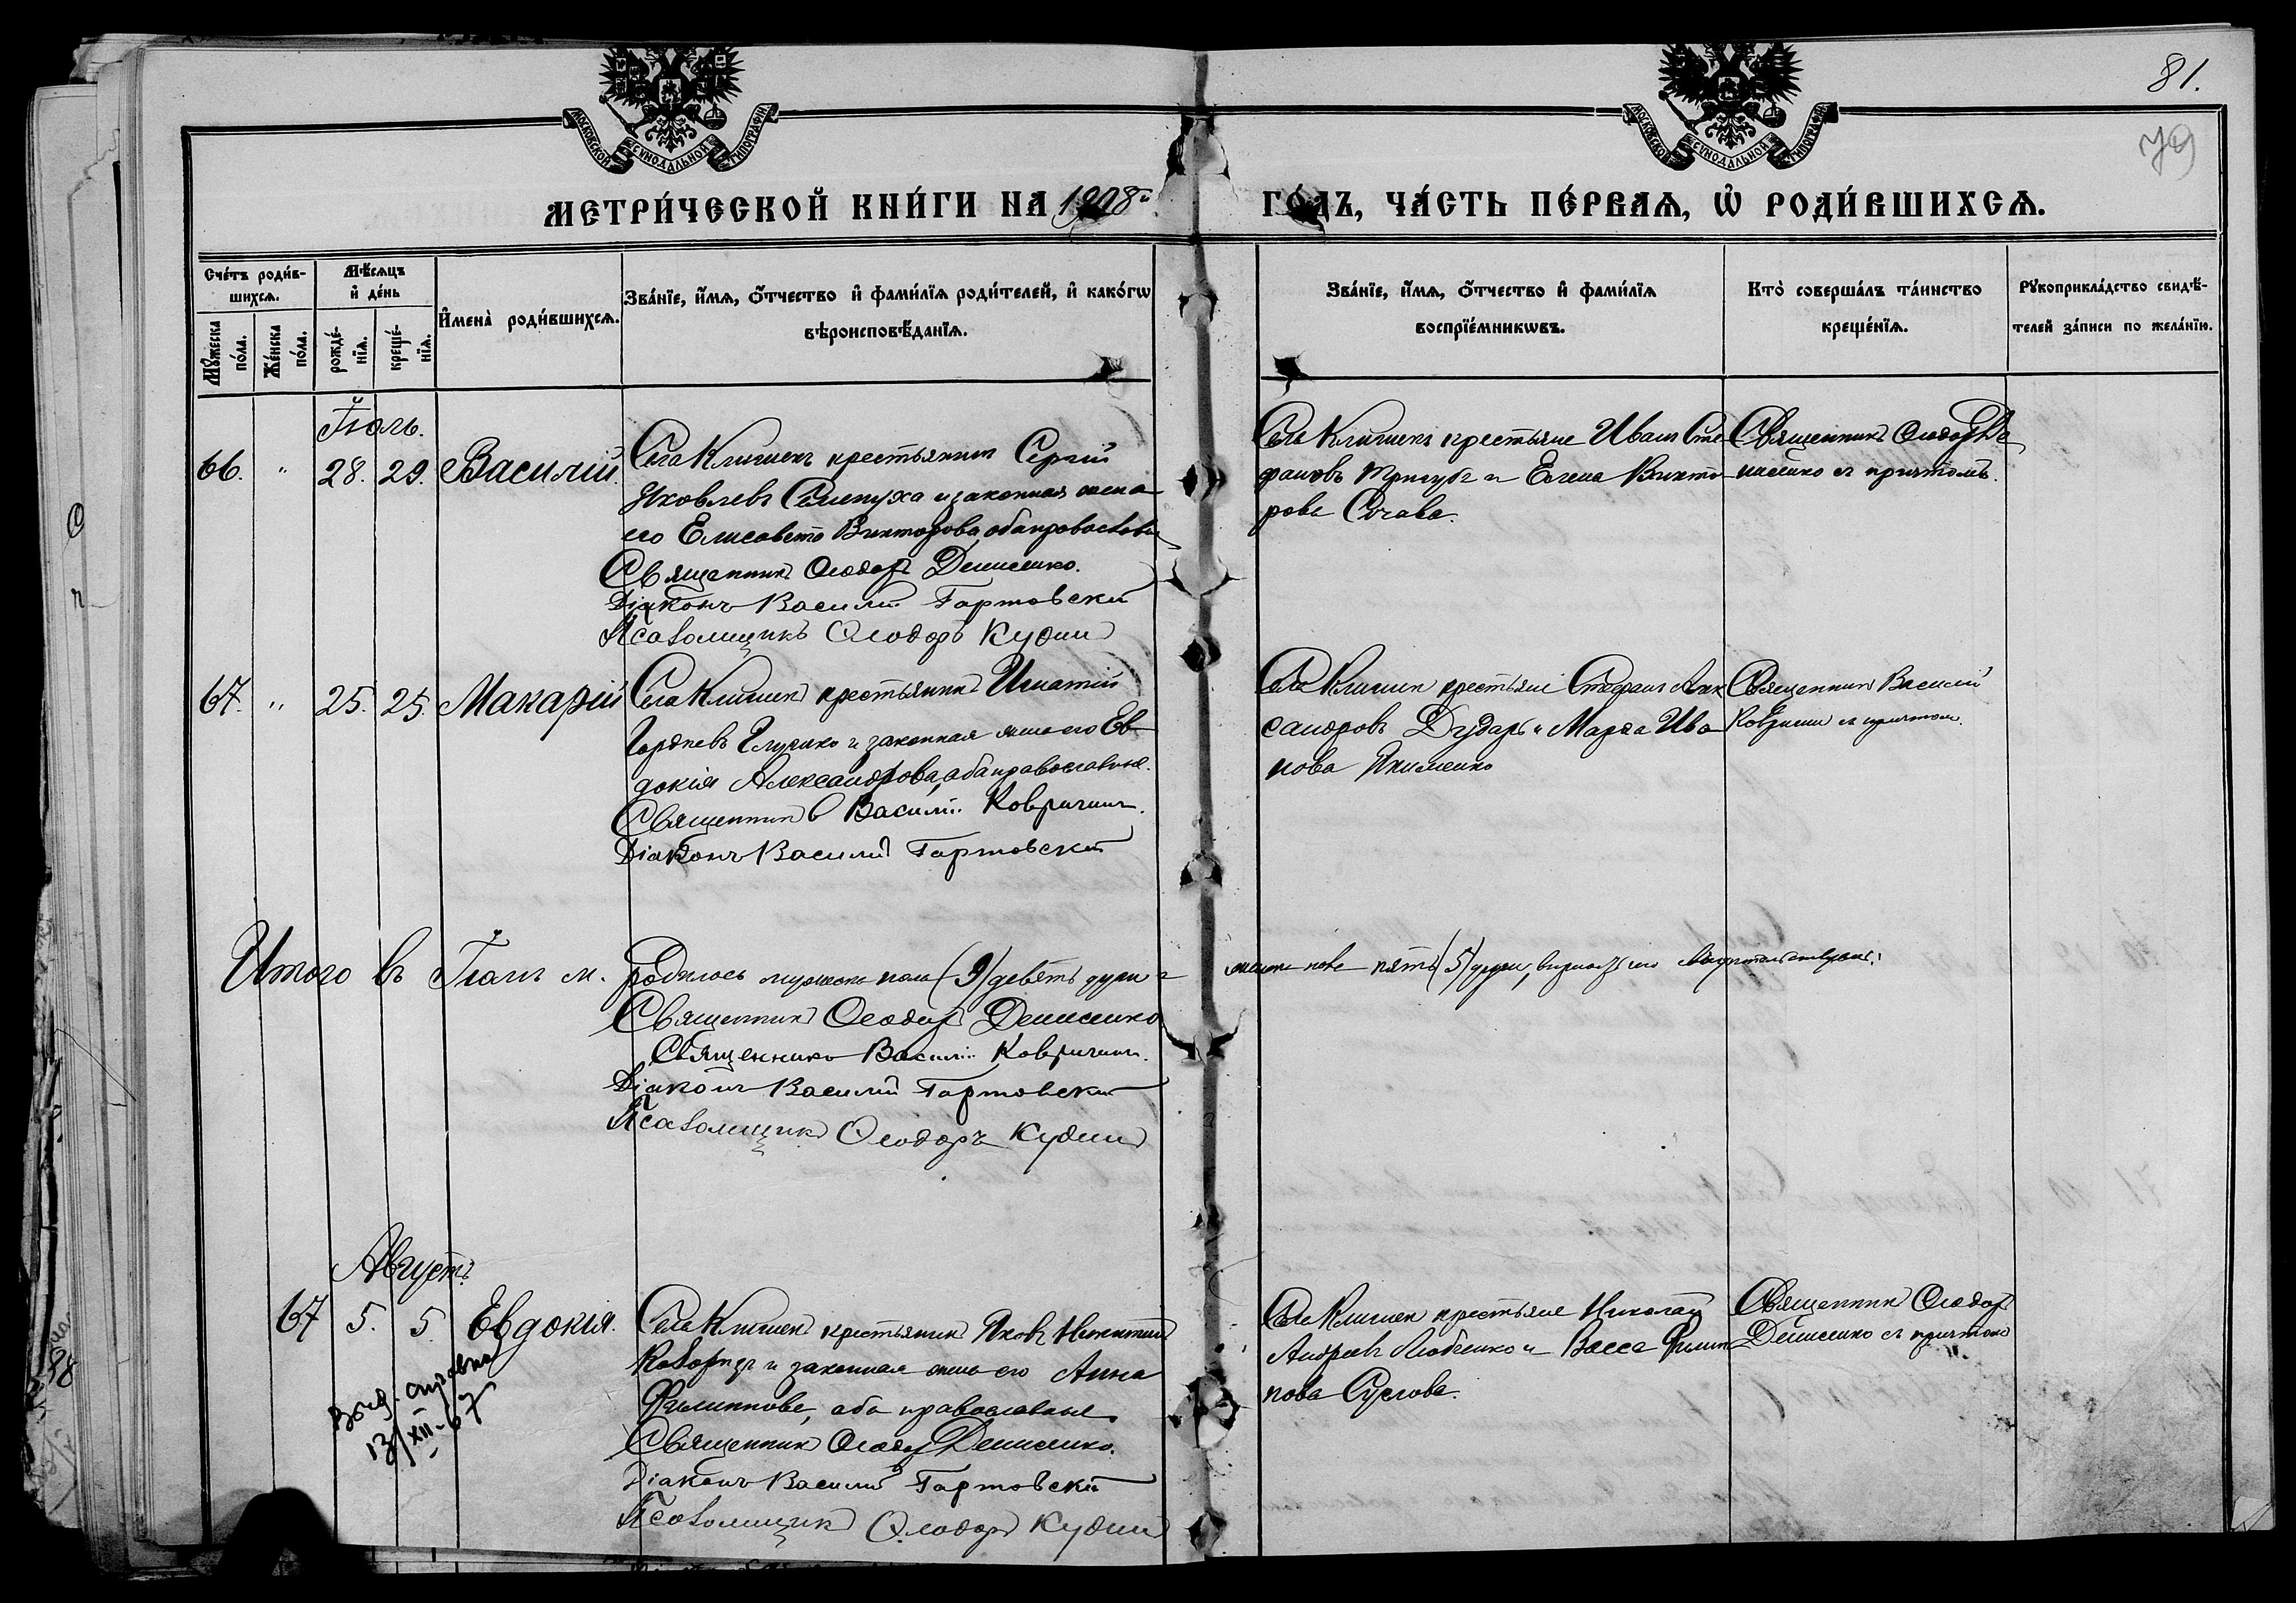 81.
79
МОСКОВСКОЙ СѴНОДАЛЬНОЙ ТИПОГРАФІИ
МОСКОВСКОЙ СѴНОДАЛЬНОЙ ТИПОГРАФІИ
МЕТРИ́ЧЕСКОЙ КНИ́ГИ НА 1908й ГО́ДЪ, ЧА́СТЬ ПЕ́РВАѦ, Ѡ РОДИ́ВШИХСѦ.
Сче́тъ роди́в-
шихсѧ.
Мꙋ́жеска по́ла.
Же́нска по́ла.
Мѣ́сѧцъ
и де́нь
рожде́-
нїѧ.
креще́-
нїѧ.
Имена̀ роди́вшихсѧ.
Зва́нїе, и́мѧ, ѻ́тчество и фами́лїѧ роди́телей, и како́гѡ
вѣроисповѣ́данїѧ.
Зва́нїе, и́мѧ, ѻ́тчество и фами́лїѧ
воспрїе́мникѡвъ.
Кто̀ соверша́лъ та́инство
креще́нїѧ.
Рꙋкоприкла́дство свидѣ́-
телей за́писи по жела́нїю.
Іюль.
66. " 28. 29. Василій.
Села Клишекъ крестьянинъ Сергій
Яковлевъ Семпуха и законная жена
его Елисавета Викторова, оба православн.
Священникъ Ѳеодоръ Денисенко.
Діаконъ Василій Гортовскій
Псаломщикъ Ѳеодоръ Кудин
Села Клишекъ крестьяне Иванъ Сте-
фановъ Тригубъ и Елена Викто-
рова
Священникъ Ѳеодоръ Де-
нисенко съ причтомъ.
67. " 25. 25. Макарій
Села Клишекъ крестьянинъ Игнатій
Гордѣевъ и законная жена его Ев-
докія Александрова, оба православные.
Священникъ Василій Ковригин.
Діаконъ Василій Гортовскій
Села Клишек крестьяне Стефанъ Алек
сандровъ Дударь и Марѳа Ива-
нова Якименко
Священникъ Василій
Ковригин съ причтом.
Итого въ Іюлѣ м. родилось мужеска пола (9) девять душъ и женска пола пять (5) душъ,
Священникъ Ѳеодоръ Денисенко
Священникъ Василій Ковригин.
Діаконъ Василій Гортовскій
Псаломщикъ Ѳеодоръ Кудин
Августъ.
67 5. 5. Евдокія.
Выд. справка
13/XII-67
Села Клишекъ крестьянинъ Яковъ Никитинъ
и законная жена его Анна
Филиппова, оба православные.
Священникъ Ѳеодоръ Денисенко.
Діаконъ Василій Гортовскій
Псаломщикъ Ѳеодоръ Кудин
Села Клишек крестьяне Николай
Андреевъ Любченко и Васса Филип-
пова Суслова.
Священникъ Ѳеодоръ
Денисенко съ причтомъ